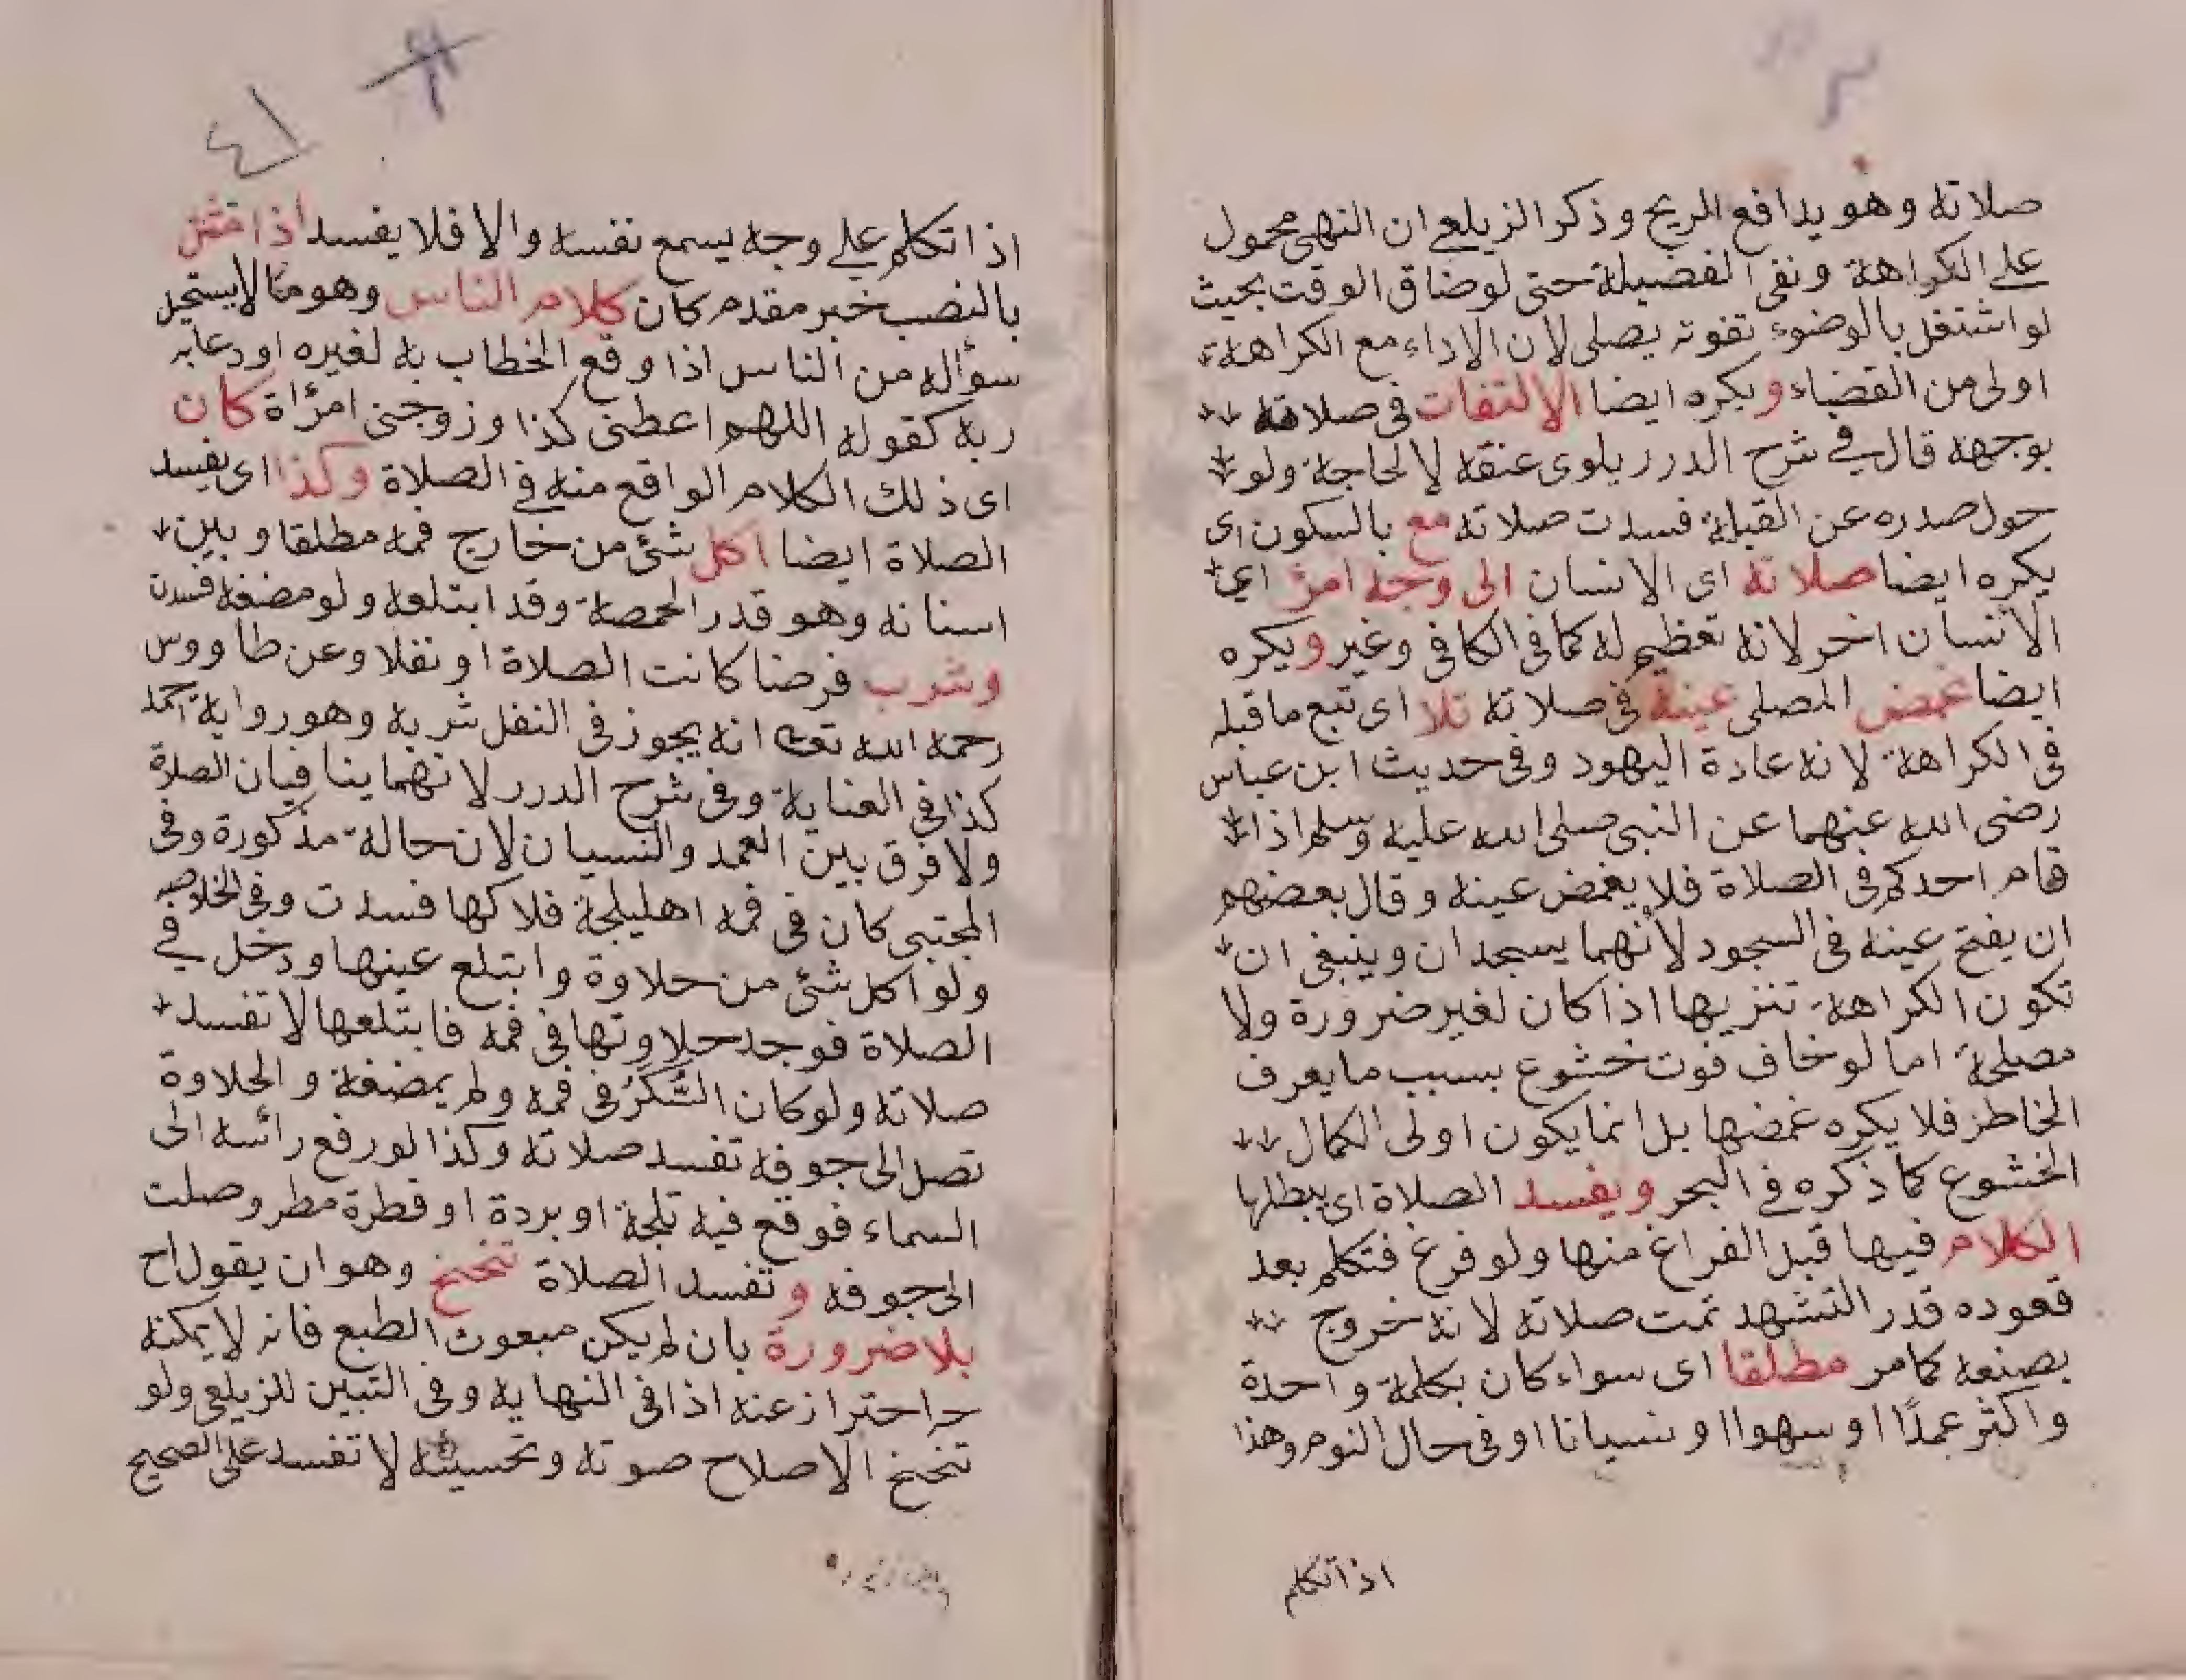 صلاته وهو يدافع الريح وذكر الزيلعى ان النهى محمول
على الكراهة ونفى الفضيلة حتى لوضاق الوقت بحيث
لو اشتغل بالوضوء تفوته يصلى لان الاداء مع الكراهة
اولى من القضاء ويكره ايضا الالتفات فى صلاته
بوجهه قال فى شرح الدرر يلوى عنقه لا لحاجة ولو
حول صدره عن القبلة فسدت صلاته مع بالسكون اى
يكره ايضا صلاته اى الانسان الى وجه امرئ اي
الأنسان اخر لانه تعظيم له كما فى الكافى وغير ويكره
ايضا غمض المصلى عينه فى صلاته تلا اى تتبع ما قبله
فى الكراهة لانه عادة اليهود وفى حديث ابن عباس
رضى الله عنهما عن النبى صلى الله عليه وسلم اذا
قام احدكم فى الصلاة فلا يغمض عينه وقال بعضهم
ان يفتح عينه فى السجود لأنهما يسجدان وينبغى ان
تكون الكراهة تنزيها اذا كان لغير ضرورة ولا
مصلحة اما لو خاف فوت خشوع بسبب ما يعرف
الخاطر فلا يكره غمضها بل انما يكون اولى الكمال
الخشوع كما ذكره فى البحر ويفسد الصلاة اى يبطلها
الكلام فيها قبل الفراغ منها ولو فرغ فتكلم بعد
قعوده قدر التشهد تمت صلاته لانه خروج
بصنعه كما مر مطلقا اى سواء كان بكلمة واحدة
واكثر عمدًا او سهوا او نسيانا او فى حال النوم وهذا
اذا تكلم
٤١
اذا تكلم على وجه يسمع نفسه والا فلا يفسد اذا
بالنصب خبر مقدم كان كلام الناس وهو مما لا يستحيل
سؤاله من الناس اذا وقع الخطاب به لغيره او دعا به
ربه كقوله اللهم اعطنى كذا وزوجنى امرأة كان
اى ذلك الكلام الواقع منه فى الصلاة وكذا اى يفسد
الصلاة ايضا اكل شئ من خارج فمه مطلقا وبين
اسنانه وهو قدر الحمصة وقد ابتلعه ولو مضغه فسدت
وشرب فرضا كانت الصلاة او نفلا وعن طاووس
رحمه الله تعالى انه يجوز فى النفل شربه وهو رواية احمد
كذا فى العناية وفى شرح الدرر لانهما ينافيان الصلاة
ولا فرق بين العمد والنسيان لان حالة مذكورة وفى
المجتبى كان فى فمه اهليلجة فلاكها فسدت وفى الخلاصه
ولو اكل شئ من حلاوة وابتلع عينها ودخل في
الصلاة فوجد حلاوتها فى فمه فابتلعها لا تفسد
صلاته ولو كان السُّكرُ فى فمه ولم يمضغه والحلاوة
تصل الى جوفه تفسد صلاته وكذا لو رفع رائسه الى
السماء فوقع فيه ثلجة او بردة او قطرة مطر وصلت
الى جوفه وتفسد الصلاة تنحنح وهو ان يقول اح
بلا ضرورة بان لم يكن مبعوث الطبع فانه لا يمكنه
احتراز عنه اذا فى النهاية وفى التبين للزيلعى ولو
تنحنح الاصلاح صوته وتحسينه لا تفسد على الصحيح